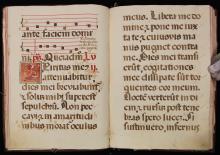 ante faciem domi
Spiritus mes
attenuabitur
dies mei breviabunt
& solum mihi superest
sepulcrum. Nõ peccavi
& in amaritudi
nibus moratur oculus
meus. Libera me do
mine & pone me iux
ta te & cuiusvis ma
nus pugnet contra
me. Dies mei transierunt
cogitationes mee
dissipate sunt
torquentes cor meum
Noctẽ verterũt in di
em & rursum post tene
bras spero lucẽ. Si
sustinuero, infernus